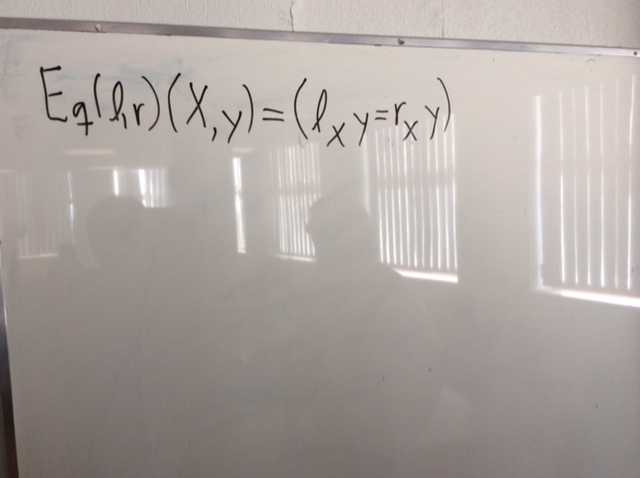 Eq(l,r)(X,y)=(l_X y=r_X y)